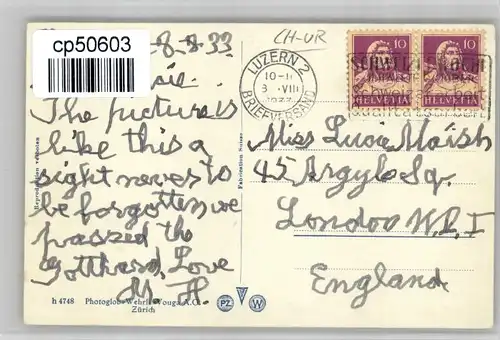 cp50603
8-8-33
CH-UR
The picture is
like this a
sight never to
be forgotten we
passed the
Gotthard, Love
M. H.
h 4748 Photoglob-Wehrli & Vouga A.G.
Zürich
Reproduction verboten
Fabrication Suisse
LUZERN 2
10-11
8.VIII
1933
BRIEFVERSAND
10
10
HELVETIA
HELVETIA
PZ
V
W
Miss Lucie Marsh
45 Argyle Sq.
London W.C.1
England